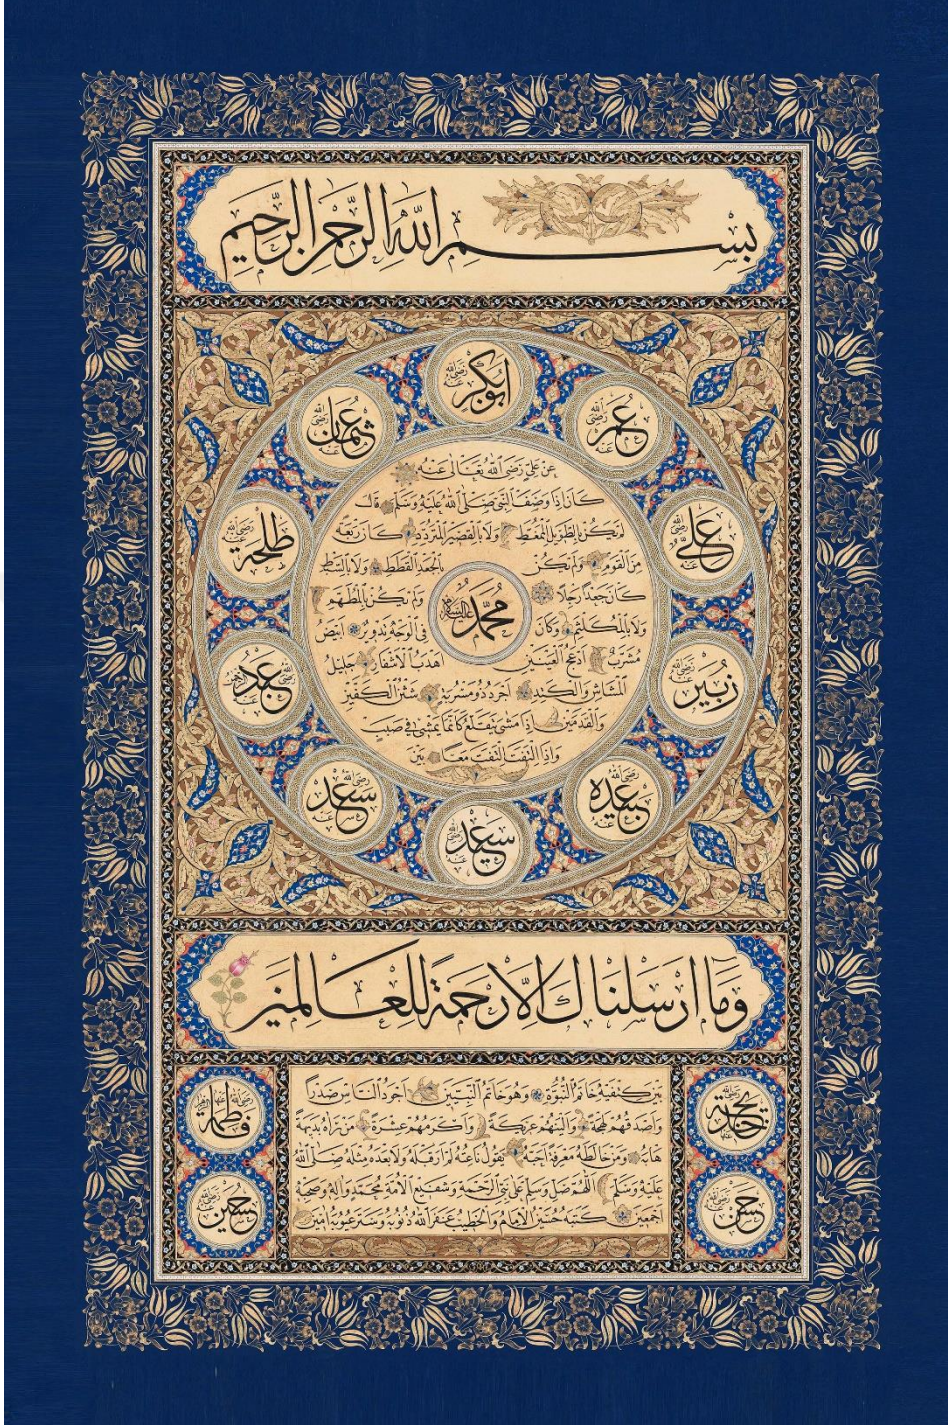 بسم الله الرحمن الرحيم
ابو بكر رضي الله عنه
عمر رضي الله عنه
عثمان رضي الله عنه
علي رضي الله عنه
طلحة رضي الله عنه
زبير رضي الله عنه
عبد رضي الله عنه
عبيده رضي الله عنه
سعد رضي الله عنه
سعيد رضي الله عنه
محمد عليه السلام
عن علي رضي الله تعالى عنه
كان اذا وصف النبي صلى الله عليه وسلم قال
لم يكن بالطويل الممغط ولا بالقصير المتردد كان ربعة
من القوم ولم يكن بالجعد القطط ولا بالسبط
كان جعدا رجلا ولم يكن بالمطهم
ولا بالمكلثم وكان في الوجه تدوير ابيض
مشرب ادعج العينين اهدب الاشفار جليل
المشاش والكتد اجرد ذو مسربة شثن الكفين
والقدمين اذا مشى يتقلع كانما يمشي في صبب
واذا التفت التفت معا بين
وما ارسلناك الا رحمة للعالمين
خديجة رضي الله عنها
فاطمة رضي الله عنها
حسن رضي الله عنه
حسين رضي الله عنه
بين كتفيه خاتم النبوة وهو خاتم النبيين اجود الناس صدرا
واصدقهم لهجة والينهم عريكة واكرمهم عشرة من راه بديهة
هابه ومن خالطه معرفة احبه يقول ناعته لم ار قبله ولا بعده مثله صلى الله
عليه وسلم اللهم صل وسلم على نبي الرحمة وشفيع الامة محمد واله وصحبه
اجمعين كتبه حسين الامام والخطيب غفر الله ذنوبه وستر عيوبه امين